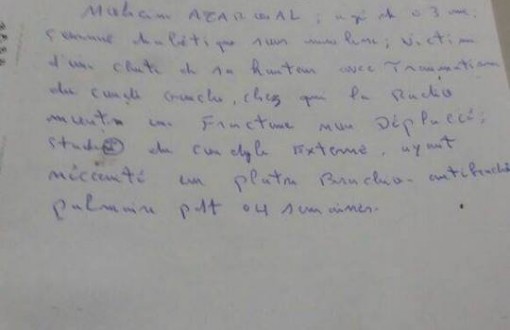 AZAROUAL, agé de 03 ans,
diabétique sous insuline, victime
d'une chute de sa hauteur avec Traumatisme
du coude gauche, chez qui la Radio
montre une Fracture non Déplacée,
stade du condyle Externe, ayant
nécessité un platre Brachio-antibrachio
palmaire pdt 04 semaines.